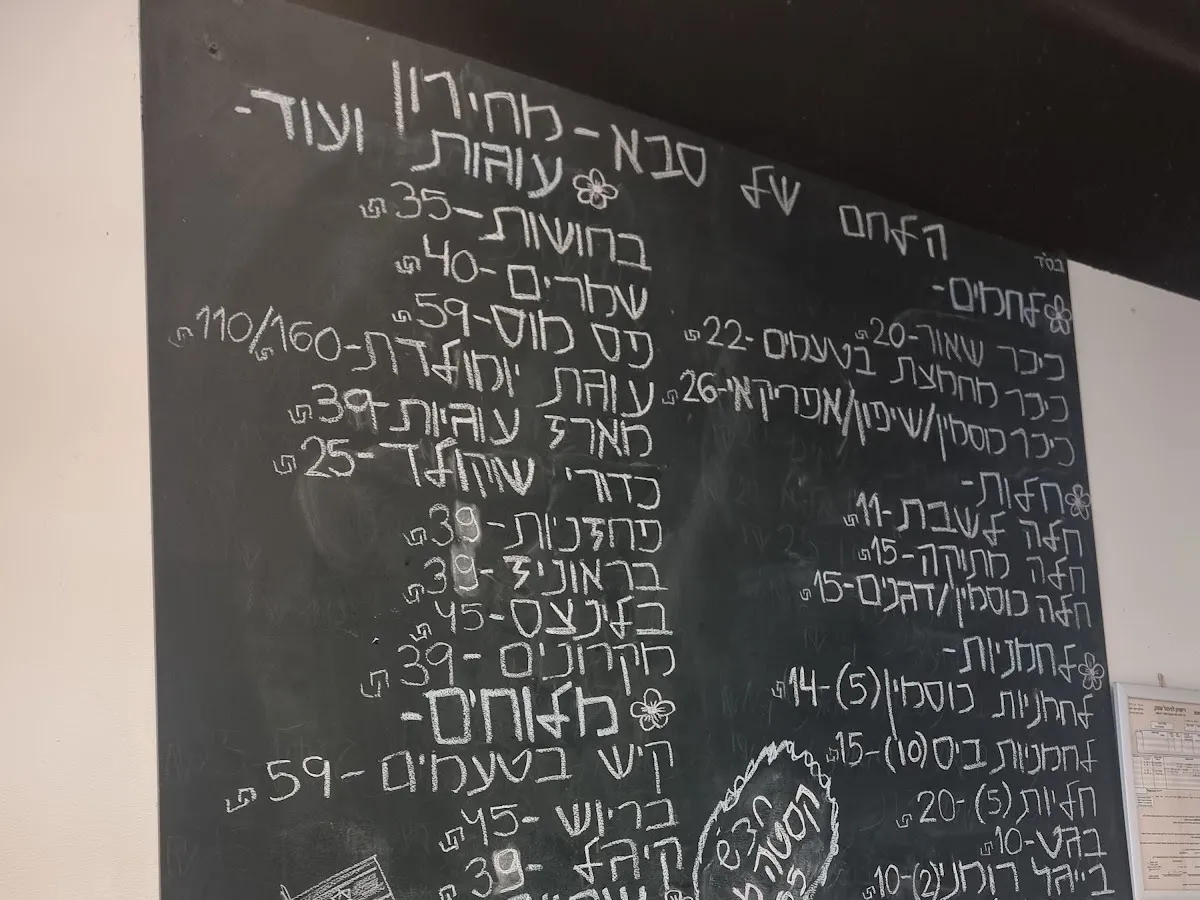 בס״ד
הלחם של סבא - מחירון
לחמים-
כיכר שאור-20₪
כיכר מחמצת בטעמים-22₪
כיכר כוסמין/שיפון/אפריקאי-26₪
חלות-
חלה לשבת-11₪
חלה מתיקה-15₪
חלה כוסמין/דגנים-15₪
לחמניות-
לחמניות כוסמין(5)-14₪
לחמניות ביס(10)-15₪
חליות(5)-20₪
בגט-10₪
בייגל רומני(2)-10₪
עוגות ועוד-
בחושות-35₪
שמרים-40₪
פס מוס-59₪
עוגת יומולדת-110/160₪
מארז עוגיות-39₪
כדורי שוקולד-25₪
פחזניות-39₪
בראוניז-39₪
בלינצס-45₪
מקרונים-39₪
מלוחים-
קיש בטעמים-59₪
בריוש-45₪
קיהל-39₪
חדש